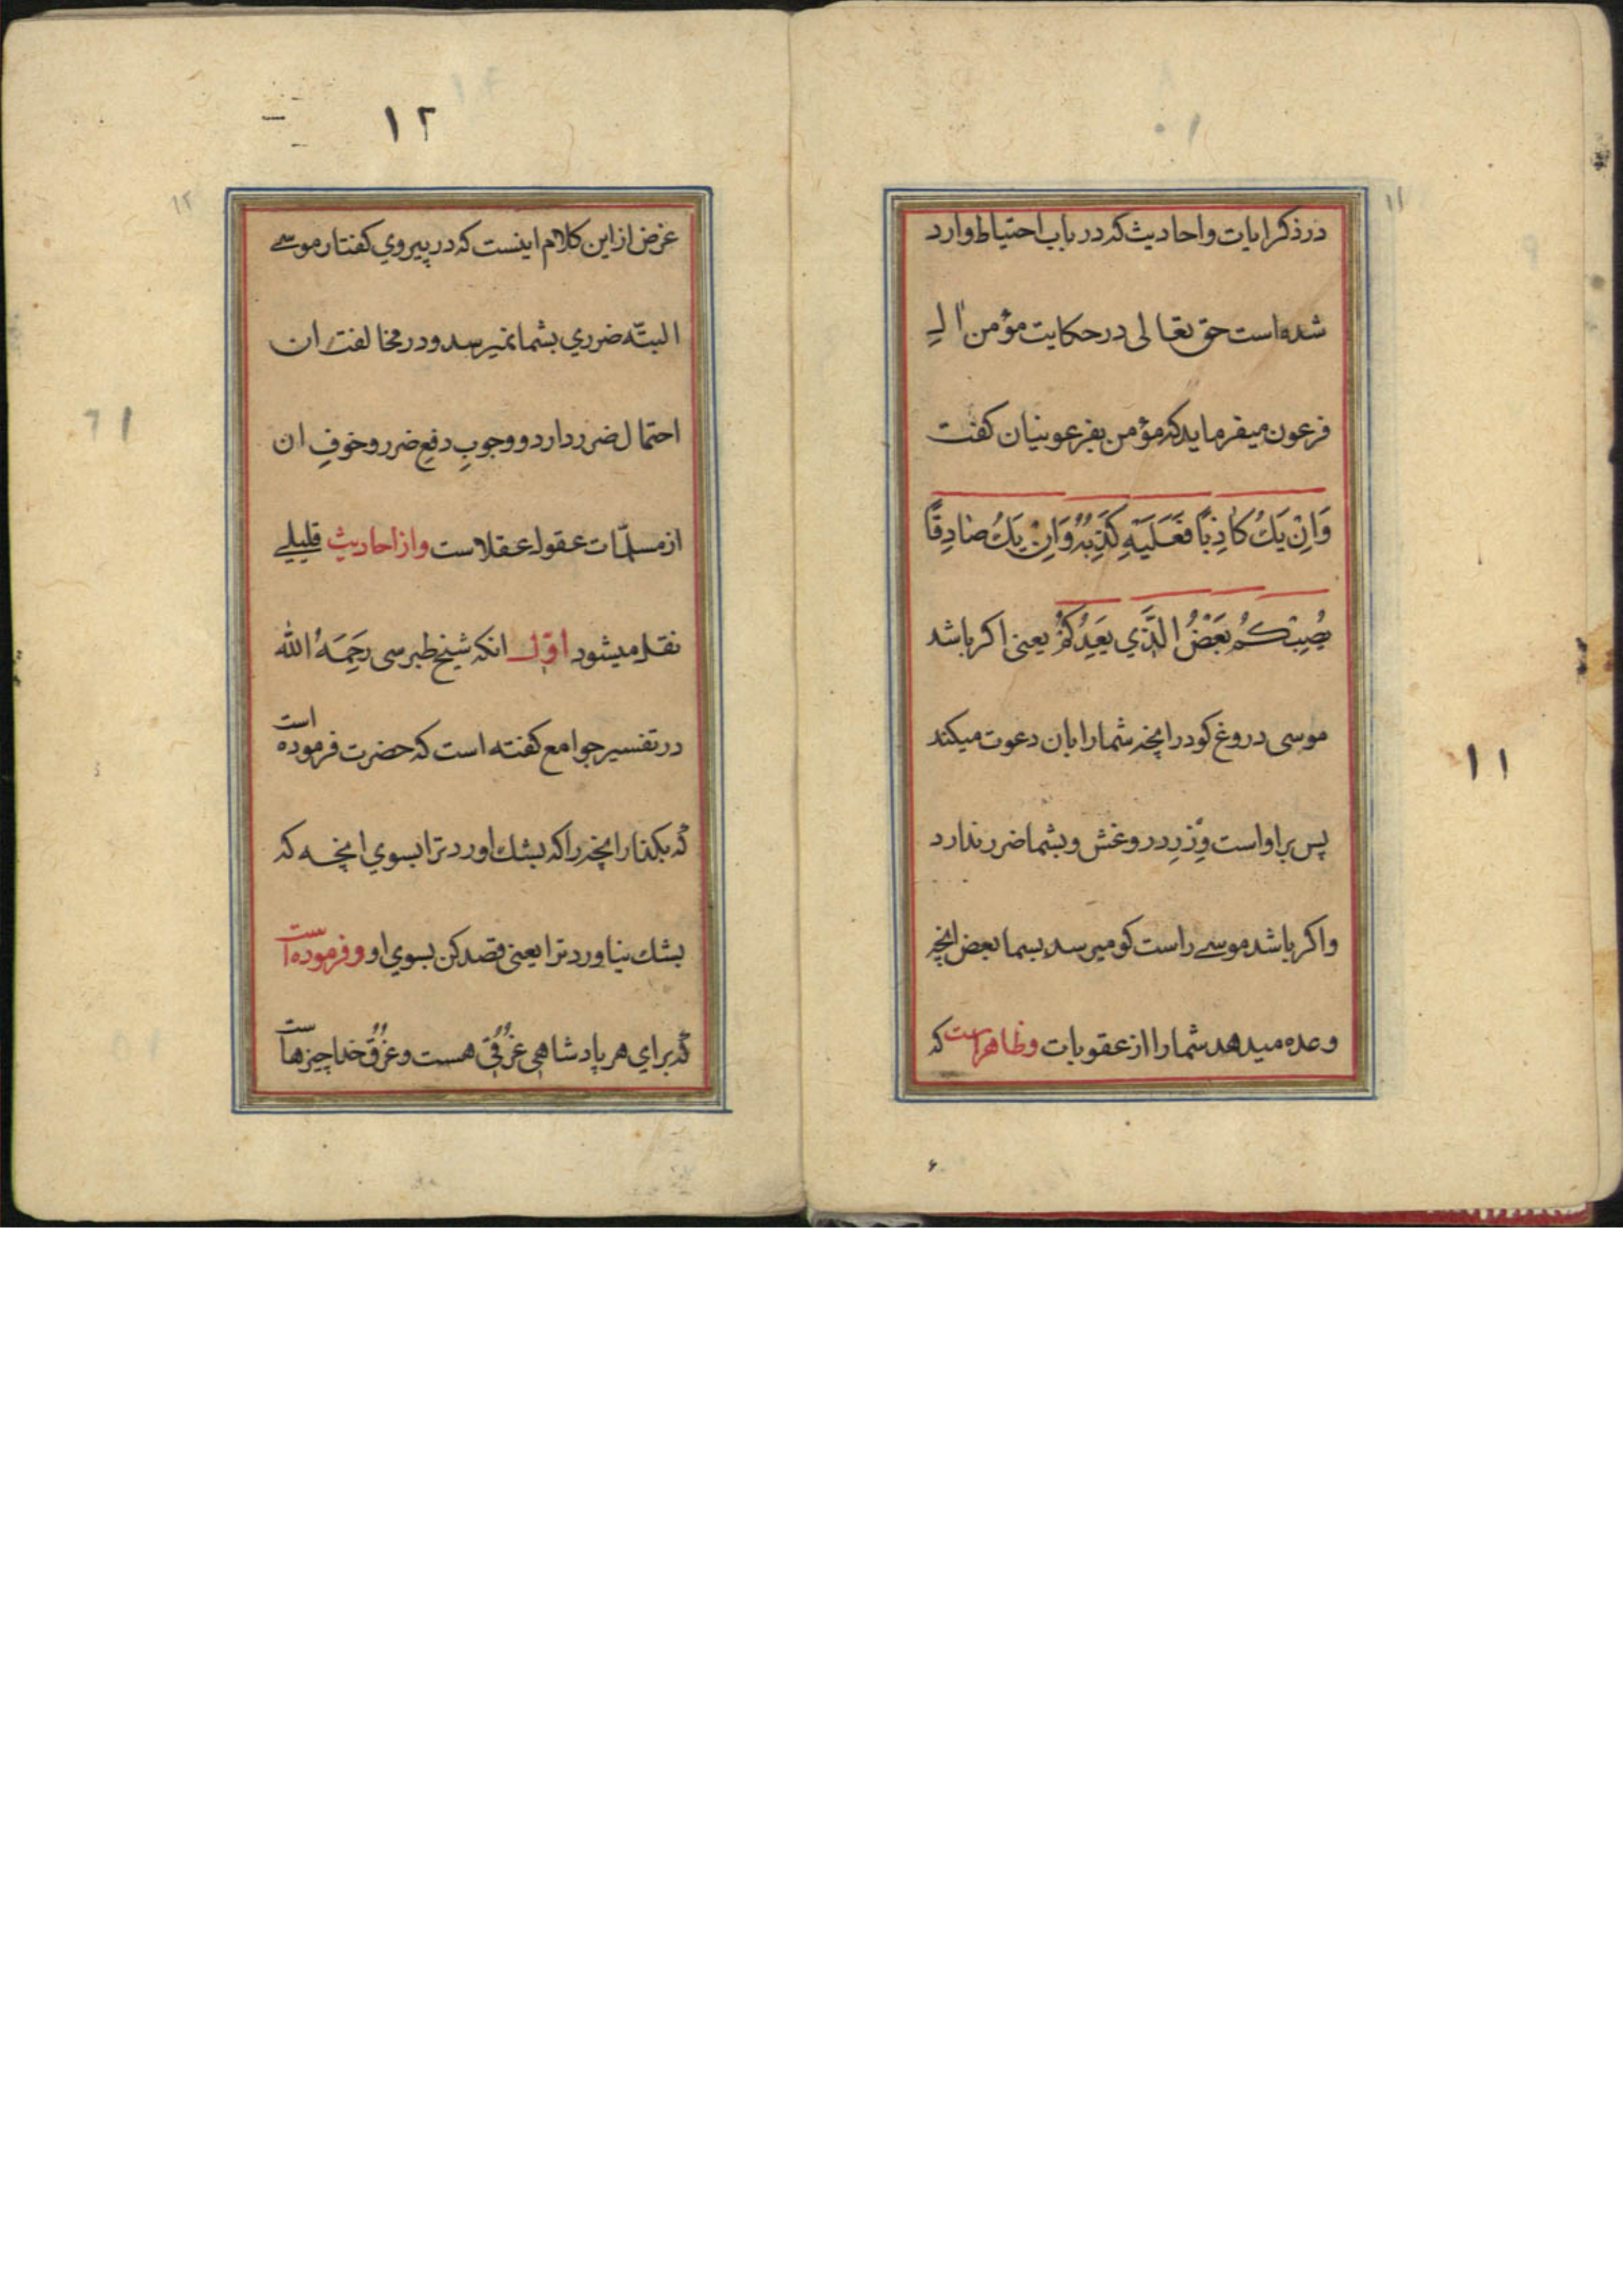 ۱۱
درذکر ایات واحادیث که در باب احتیاط وارد
شده است حق تعالی در حکایت مؤمن ال
فرعون میفرماید که مؤمن بفرعونیان کفت
وَاِنْ یَكُ کَاذِبًا فَعَلَیْهِ کَذِبُهُ وَاِنْ یَكُ صَادِقًا
یُصِبْکُمْ بَعْضُ الَّذِي یَعِدُکُمْ یعنی اکر باشد
موسی دروغ کو در انچه شما را بان دعوت میکند
پس بر اواست وِزرِ دروغش و بشما ضرر ندارد
واکر باشد موسے راست کو میرسد بسما بعض انچه
وعده میدهد شما را از عقوبات وظاهر است که
۱۱
۱۲
۱۲
غرض از این کلام اینست که در پیروي کفتار موسے
البتّه ضرري بشما نمیرسد و در مخالفت ان
احتمال ضرر دارد و وجوبِ دفعِ ضرر و خوفِ ان
از مسلّمات عقول عقلاست واز احادیث قلیلے
نقل میشود اوّل انکه شیخ طبرسی رَحِمَهُ الله
در تفسیر جوامع کفته است که حضرت فرموده است
که بکذار انچه را که بشك اورد ترا بسوي انچه که
بشك نیاورد ترا یعنی قصد کن بسوي او وفرموده است
که براي هر پادشاهی غُرُقی هست وغُرُق خدا چیزهاست